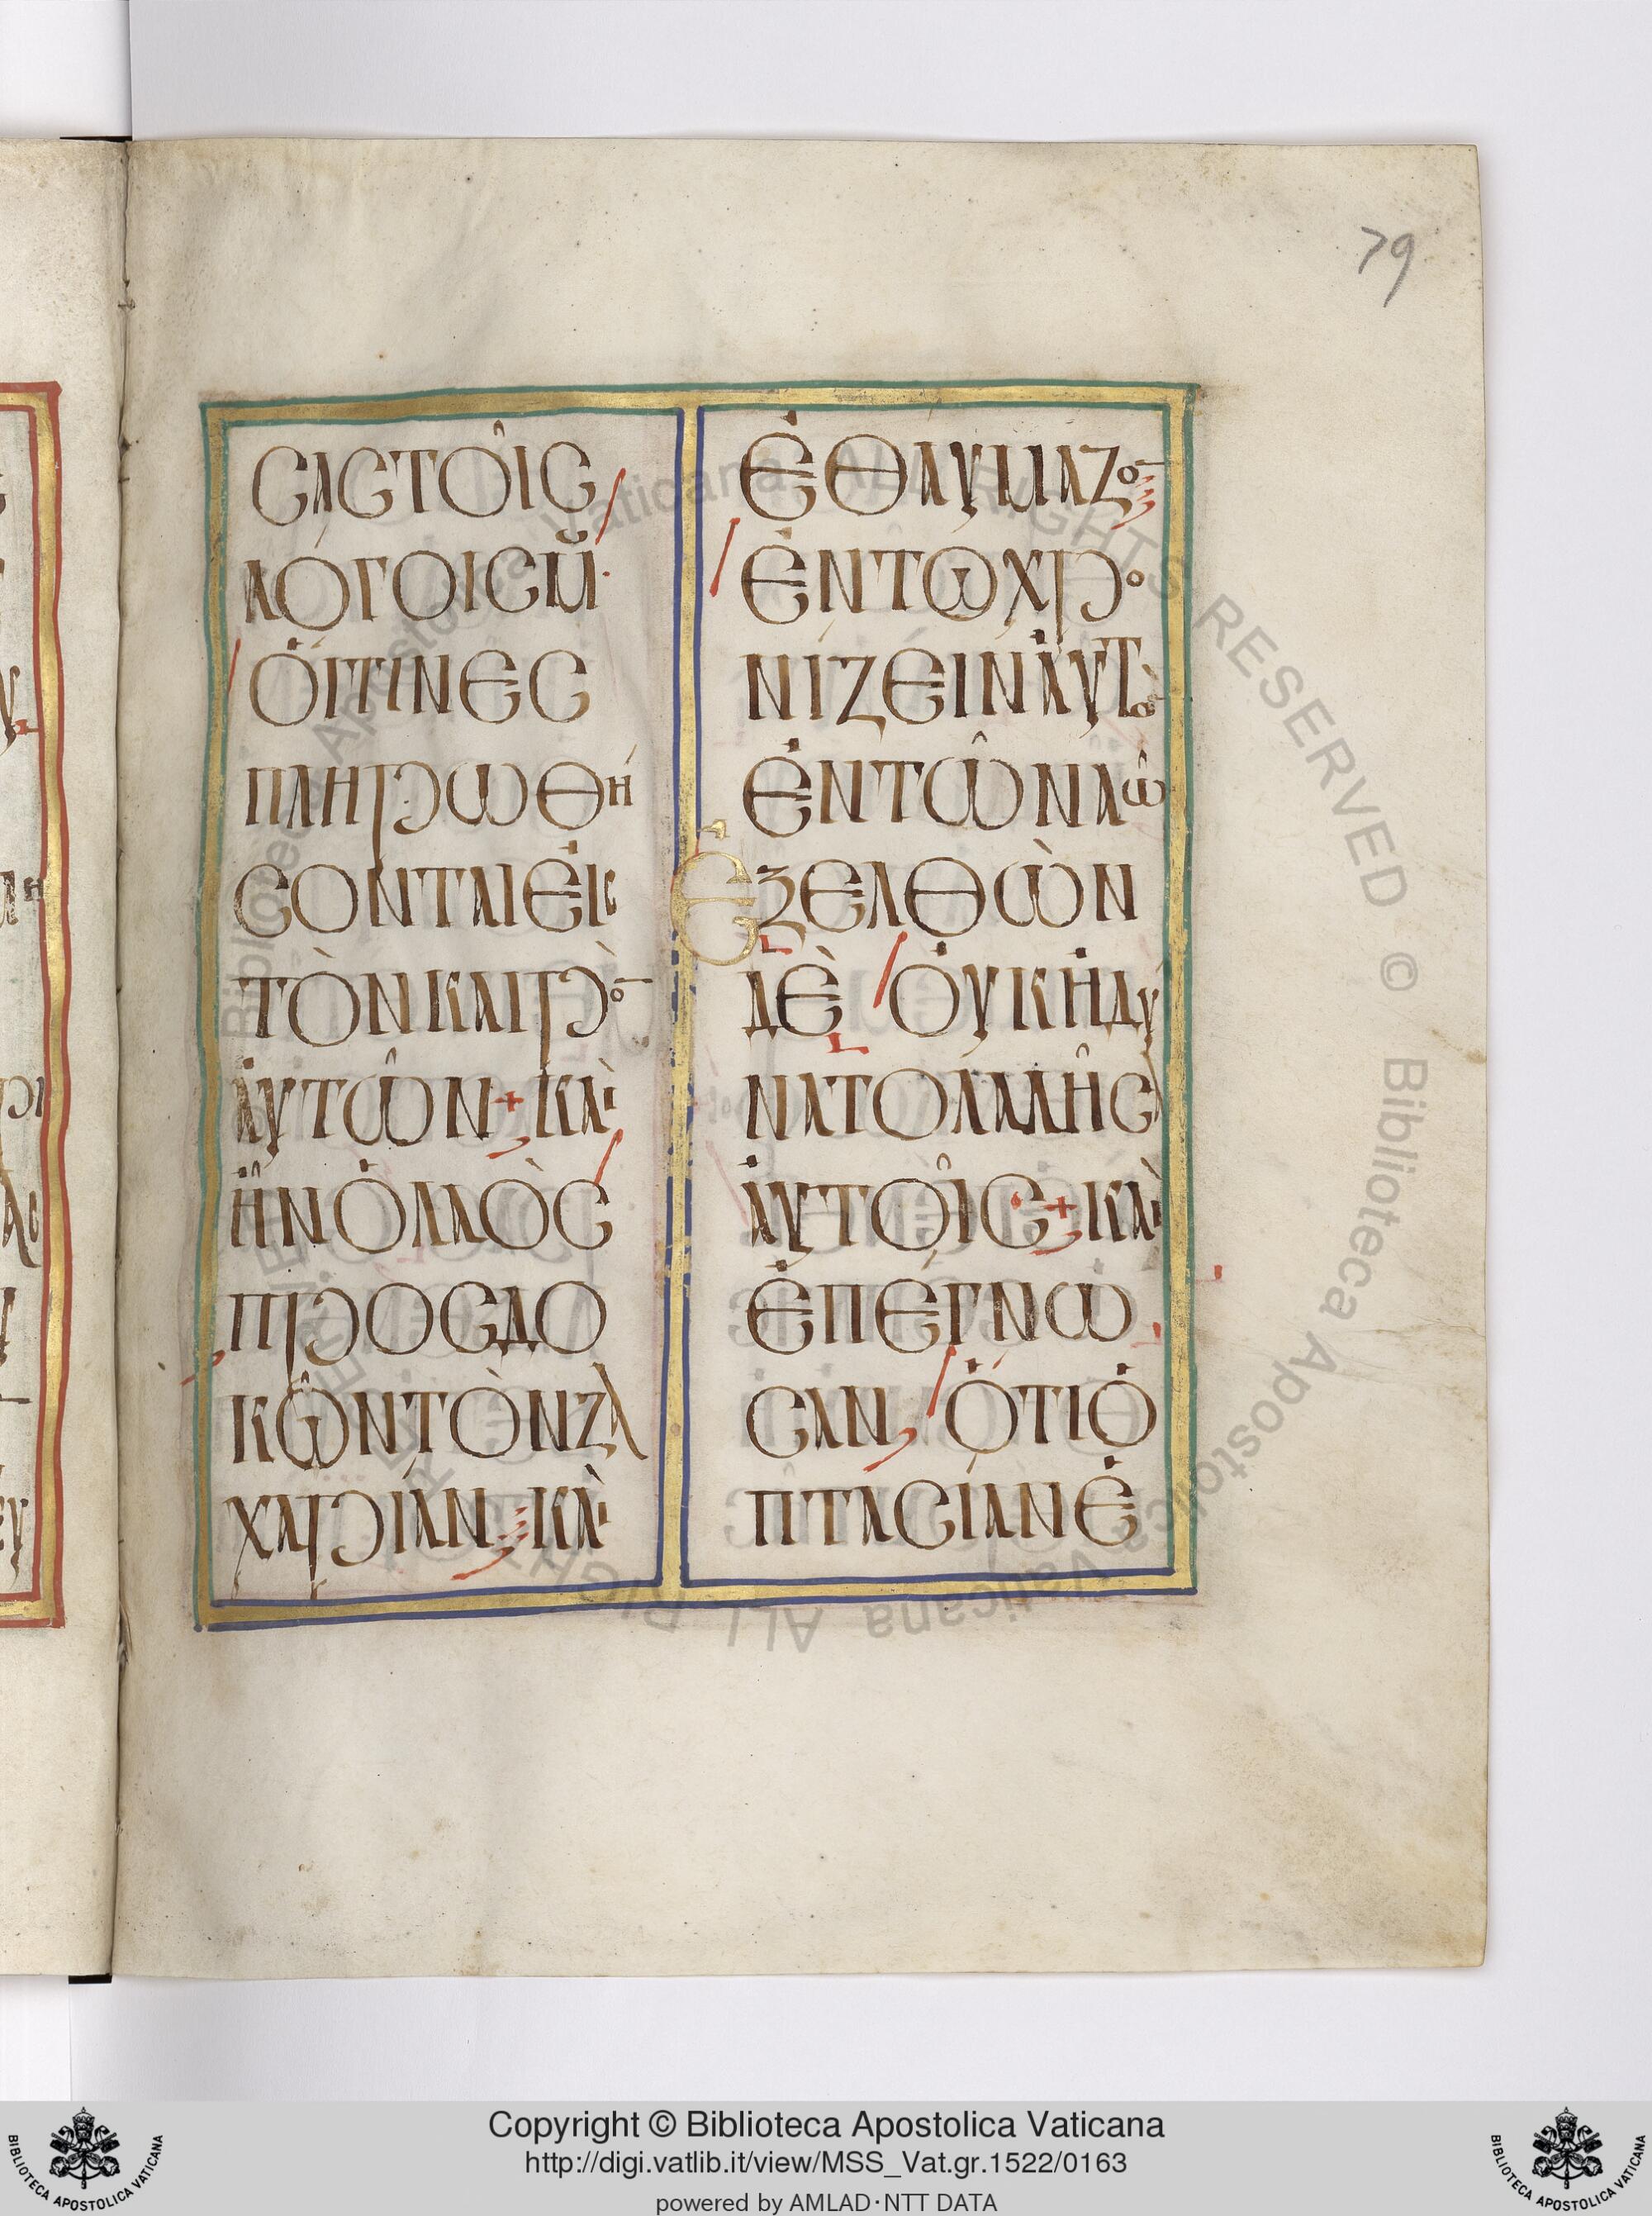 79
CΑC ΤΟῖC
ΛόΓΟΙC Μ̆
ὍΙΤΙΝΕC
ΠΛΗΡΩΘή
CΟΝΤΑΙ ἐΙC
ΤὸΝ ΚΑΙΡὸ‾
ἀΥΤῶΝ + Κὰι
ἦΝ ὁ ΛΑὸC
ΠΡΟCΔΟ
ΚῶΝ ΤὸΝ ΖΑ
ΧΑΡίΑΝ, Κὰι
ἐΘΑύΜΑΖο‾
ἐΝ Τῶ ΧΡο
ΝίΖΕΙΝ ἀΥΤὸ‾
ἐΝ Τῶ ΝΑῶ
ἘΞΕΛΘὼΝ
Δὲ ὀΥΚ ἠΔύ
ΝΑΤΟ ΛΑΛῆCΑΙ
ἀΥΤΟῖC + Κὰι
ἐΠέΓΝΩ
CΑΝ, ὅΤΙ ὀ
ΠΤΑCίΑΝ ἑ
Copyright © Biblioteca Apostolica Vaticana
http://digi.vatlib.it/view/MSS_Vat.gr.1522/0163
powered by AMLAD·NTT DATA
BIBLIOTECA APOSTOLICA VATICANA
BIBLIOTECA APOSTOLICA VATICANA
Biblioteca Apostolica Vaticana ALL RIGHTS RESERVED © Biblioteca Apostolica Vaticana ALL RIGHTS RESERVED